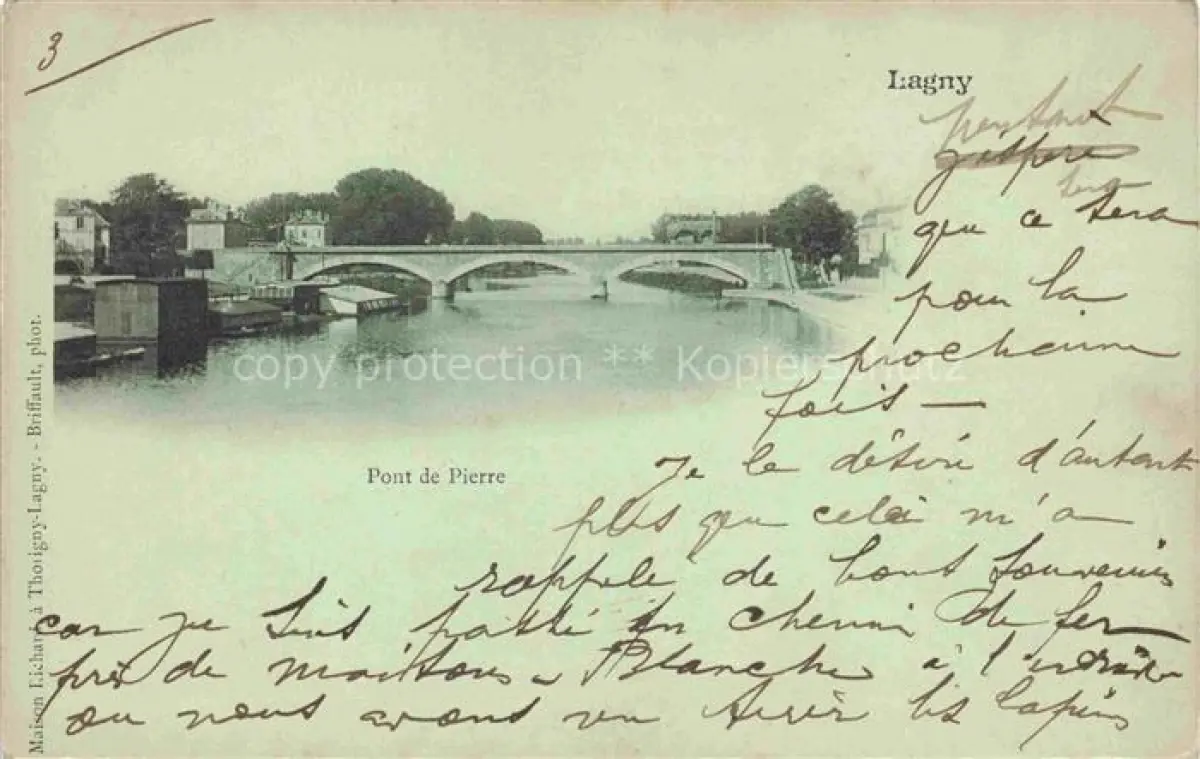 3
Lagny
pourtant
j'espère
que ce sera
pour la
prochaine
fois —
copy protection ** Kopierschutz
Pont de Pierre
Je le désire d'autant
plus que cela m'a
rappelé de bons souvenirs
car je suis passé en chemin de fer
près de maisons Blanche à l'endroit
ou nous avons vu les lapins
Maison Lichard à Thorigny-Lagny. - Briffault, phot.